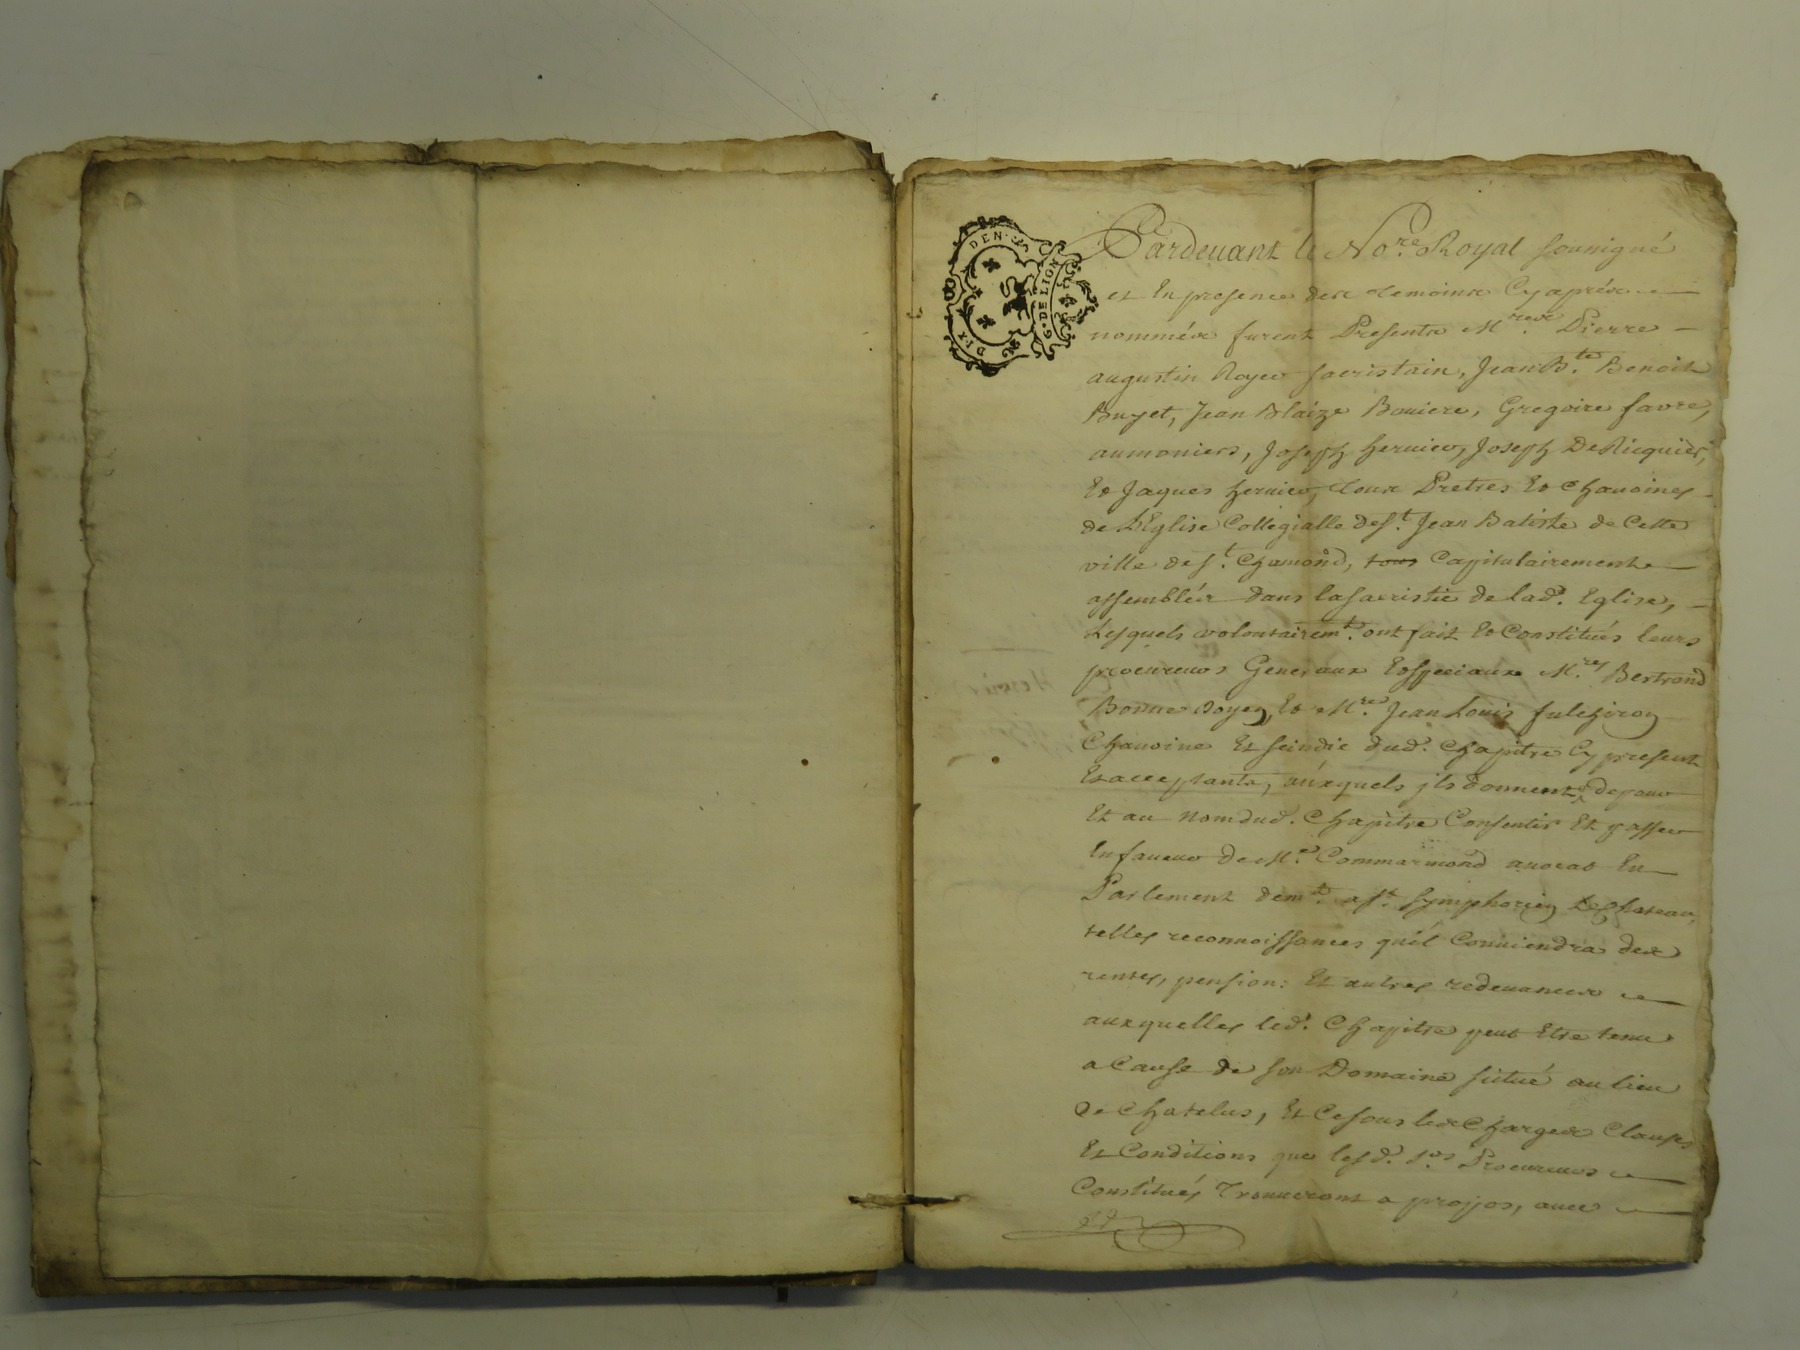 DIX DEN.
G. DE LION
Pardevant le No.re Royal soussigné
et En presence des temoins Cyaprés
nommés furent Presents M.res Pierre
augustin Royer sacristain, Jean B.te Benoit
Buyet, Jean Blaize Baviere, Gregoire favre,
aumoniers, Joseph hervier, Joseph De Ricquier,
Et Jaques hervier, tous Pretres Et Chanoines
de L'Eglise Collegialle de S.t Jean Batiste de Cette
ville de S.t Chamond, tous Capitulairement
assemblés dans la sacristie de lad. Eglise,
Lesquels volontairem.t ont fait Et Constitués leurs
procureurs Generaux Et speciaux M.res Bertrand
Bonne Doyen, Et M.re Jean Louis
Chanoine Et scindic dud. Chapitre Cy present
Et acceptants, auxquels ils donnent, de pour
Et au nom dud. Chapitre Consentir Et passer
En faveur de M.e Commarmond avocat En
Parlement dem.t a S.t Symphorien Le Chateau,
telles reconnoissances qu'il Conviendra des
rentes, pension: Et autres redevances
auxquelles led. Chapitre peut Etre tenu
a Cause de son Domaine situé au lieu
de Chatelus, Et Ce sous les Charges Clauses
Et Conditions que lesd. s.rs Procureurs
Constitués Trouveront a propos, avec